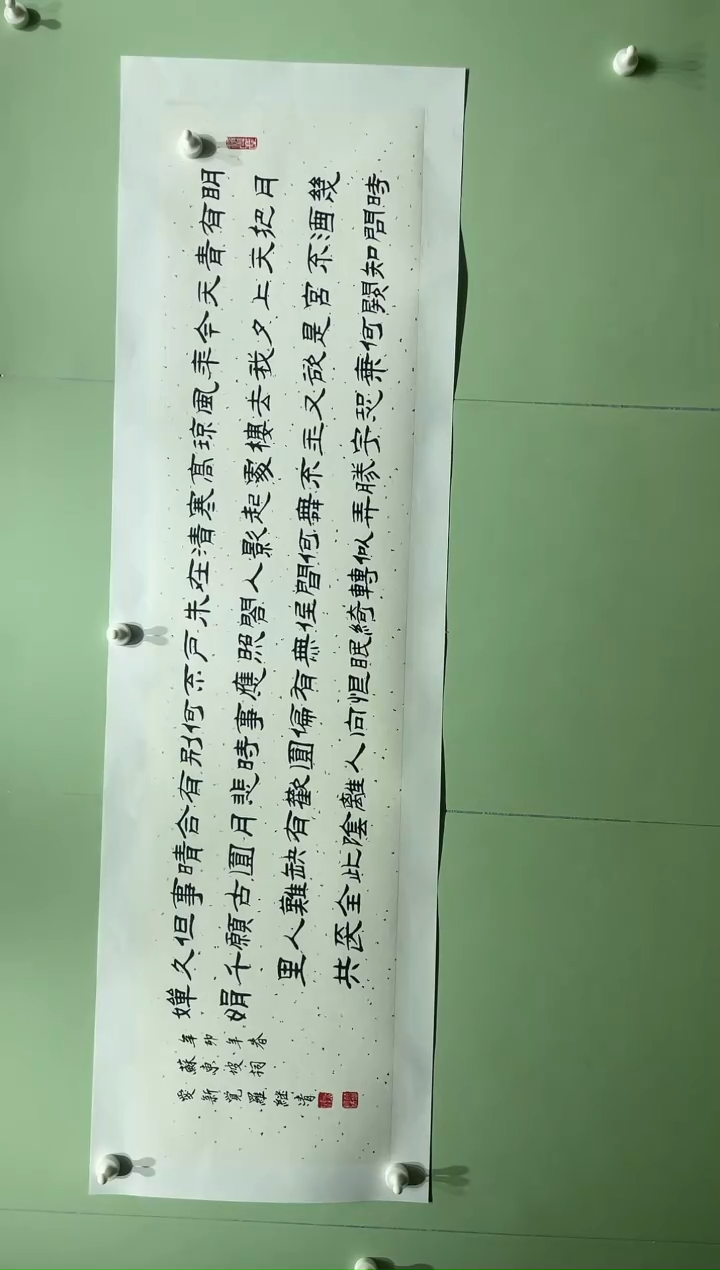 明月幾時
有把酒問
青天不知
天上宮闕
今夕是何
年我欲乘
風去又恐
瓊樓玉宇
高處不勝
寒起舞弄
清影何似
在人間轉
朱閣低綺
戶照無眠
不應有恨
何事偏向
別時圓人
有悲歡離
合月有陰
晴圓缺此
事古難全
但願人長
久千里共
嬋娟
辛卯年春
蘇東坡詞
愛新覺羅継清